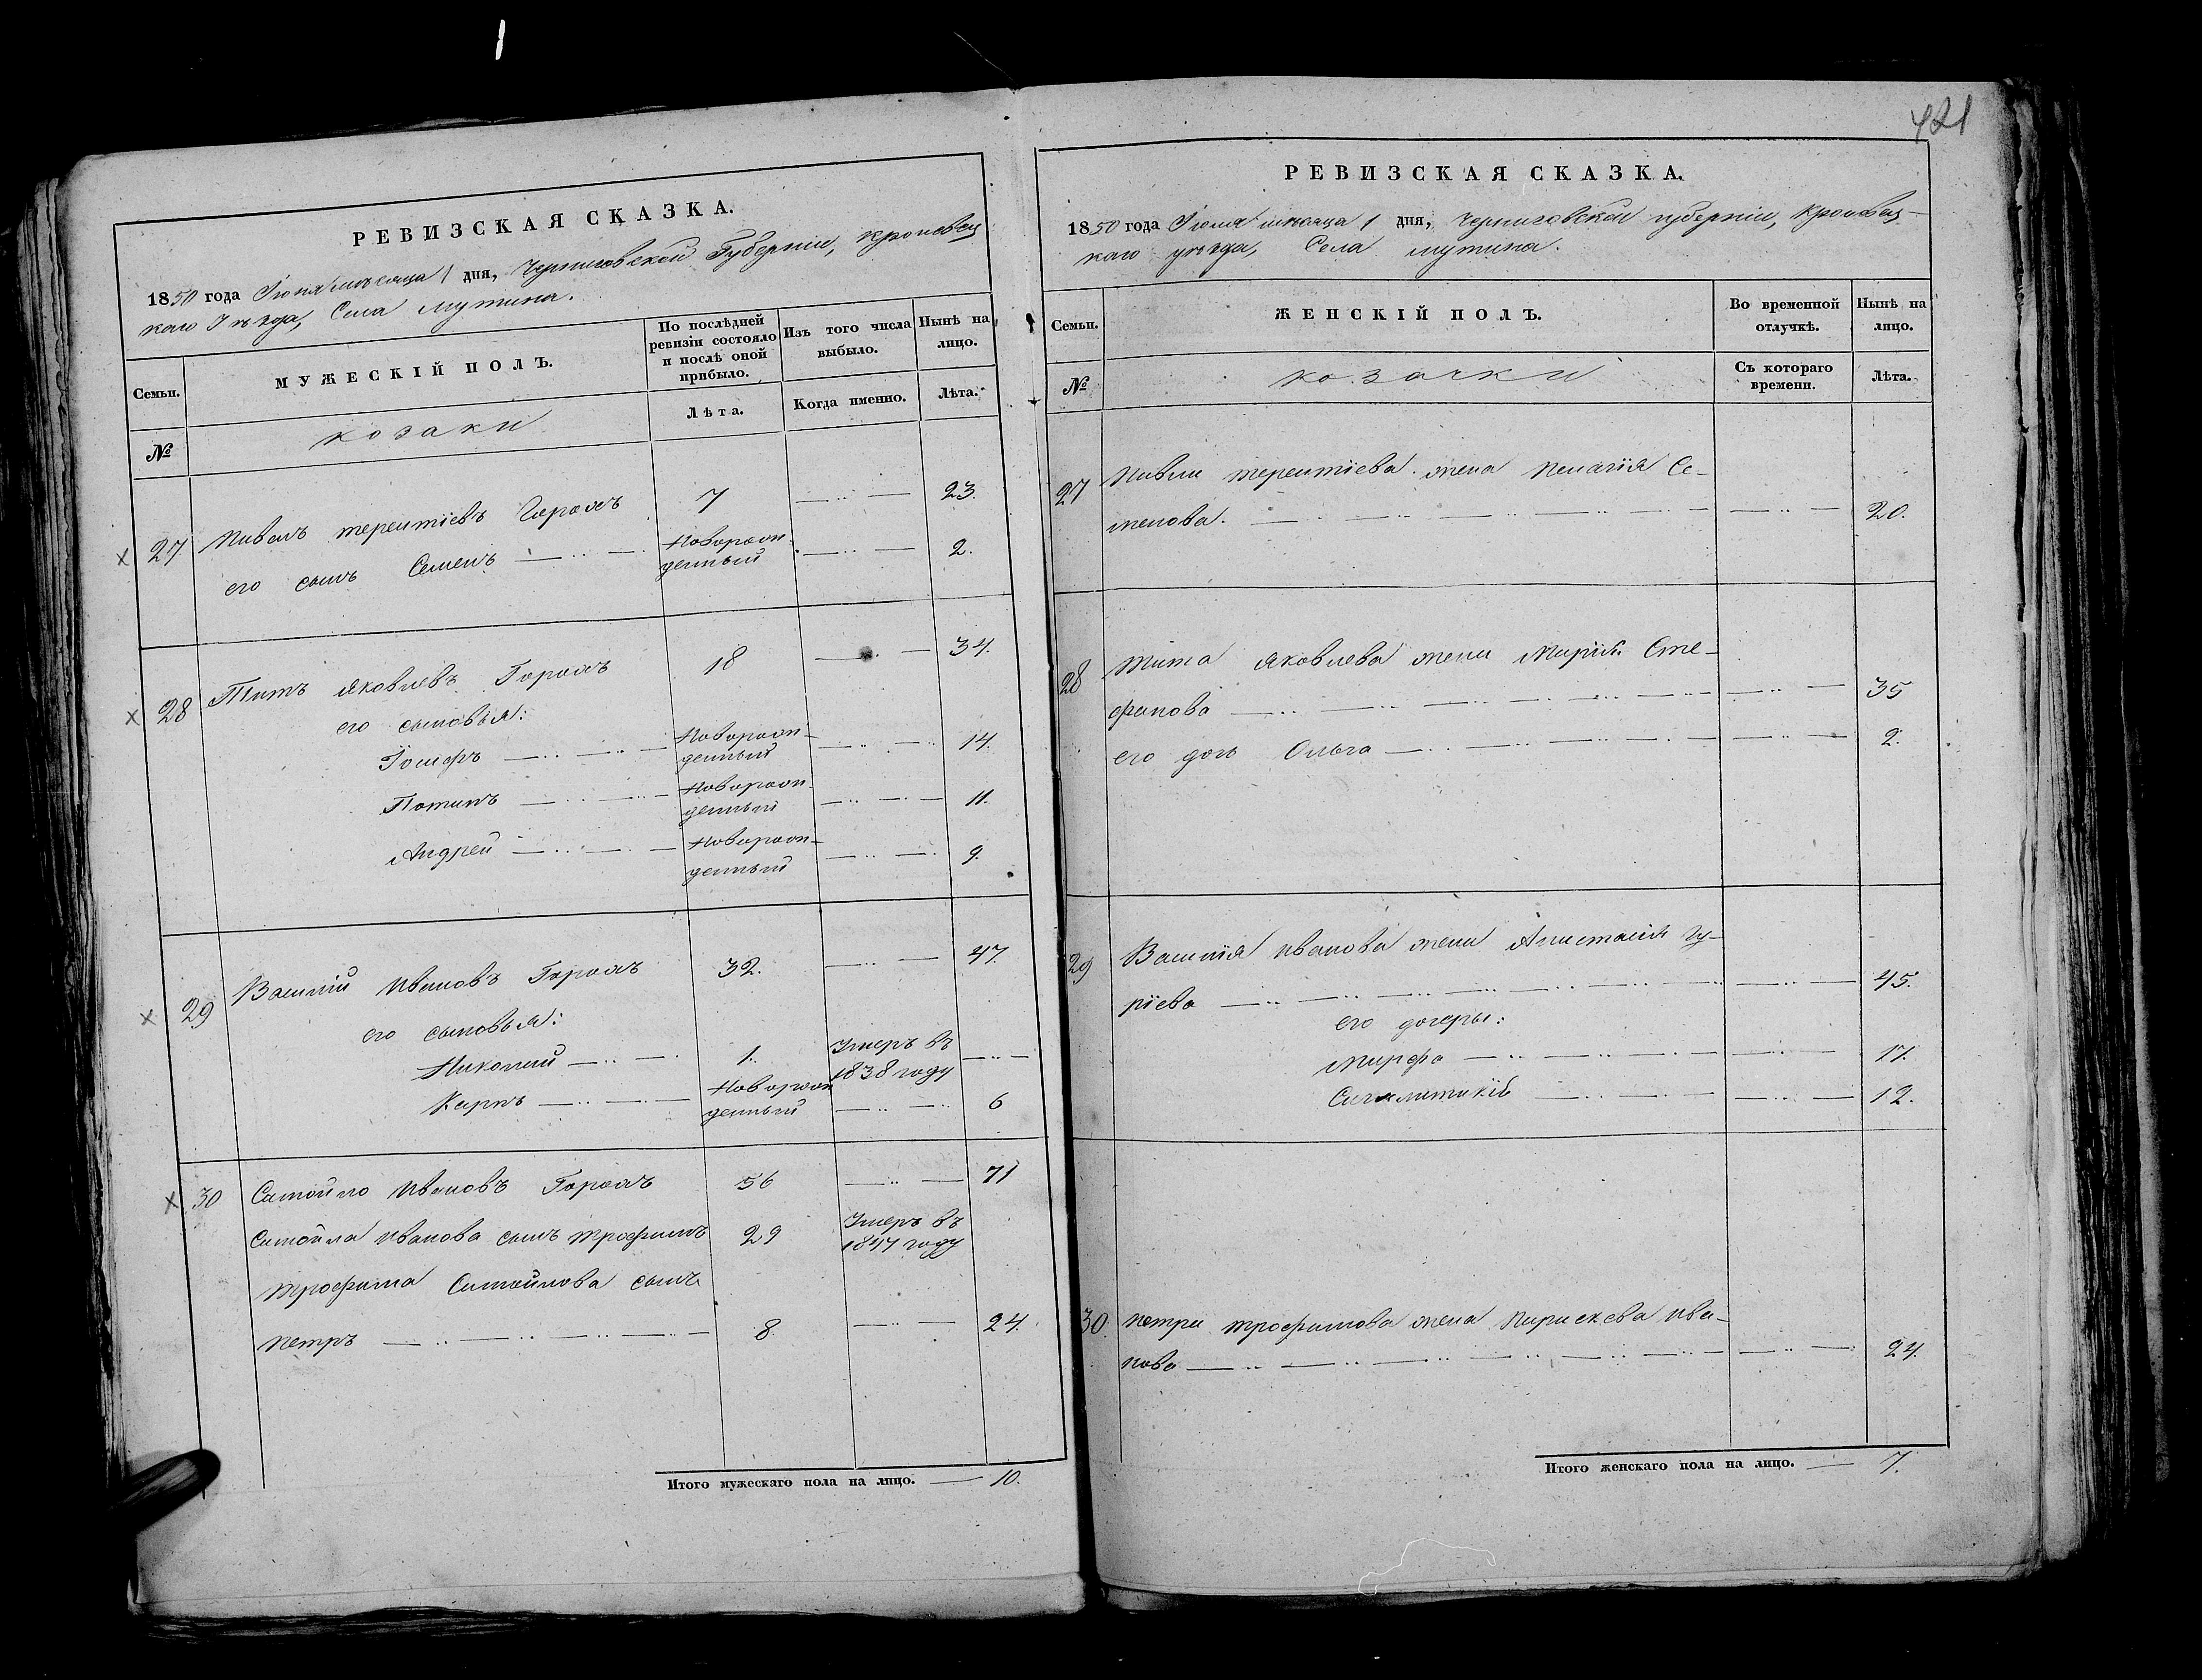 421
РЕВИЗСКАЯ СКАЗКА.
1850 года Іюня мѣсяца 1 дня, Черниговской Губерніи, Кролевец
каго Уѣзда, Села Мутина.
Семьи.
МУЖЕСКІЙ ПОЛЪ.
По послѣдней
ревизіи состояло
и послѣ оной
прибыло.
Изъ того числа
выбыло.
Нынѣ на
лицо.
№
козаки
Лѣта.
Когда именно.
Лѣта.
27 Павелъ Терентіевъ 7 23.
его сынъ Семенъ Новорож-
денный 2.
28 Титъ Яковлевъ 18 34.
его сыновья:
Іосифъ Новорож-
денный 14.
Потапъ Новорож-
денный 11.
Андрей Новорож-
денный 9.
29 Василій Ивановъ 32. 47.
его сыновья:
Николай 1. Умеръ въ
1838 году
Карпъ Новорож
денный 6
30 Самойло Ивановъ 56 71
Самойла Иванова сынъ Трофимъ 29 Умеръ въ
1847 году
Трофима Самойлова сынъ
Петръ 8. 24.
Итого мужескаго пола на лицо. 10.
РЕВИЗСКАЯ СКАЗКА.
1850 года Іюня мѣсяца 1 дня, Черниговской губерніи, Кролевец-
каго уѣзда, Села Мутина.
Семьи.
ЖЕНСКІЙ ПОЛЪ.
Во временной
отлучкѣ.
Нынѣ на
лицо.
№
козачки
Съ котораго
времени.
Лѣта.
27 Павла Терентіева жена Пелагія Се-
менова. 20.
28 Тита Яковлева жена Марія Сте-
фанова 35
его дочь Ольга 2.
29 Василія Иванова жена Анастасія Гу-
ріева 45.
его дочери:
Марфа 17.
12.
30. Петра Трофимова жена Параскева Ива-
нова 24.
Итого женскаго пола на лицо. 7.